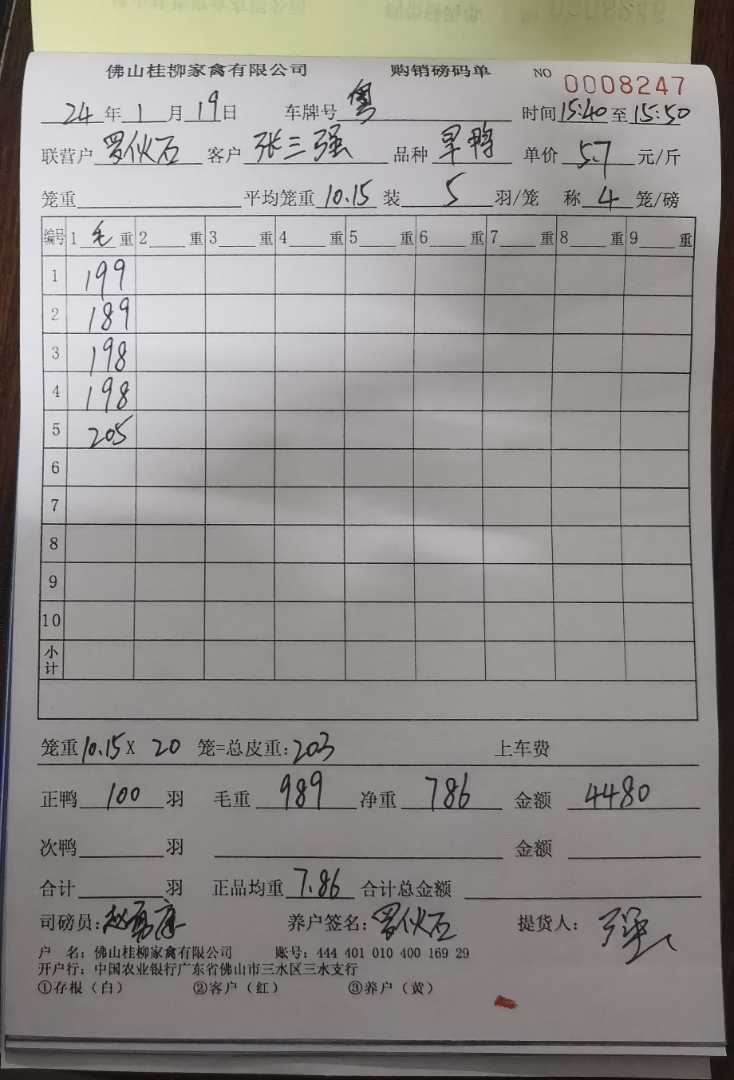 佛山桂柳家禽有限公司 购销磅码单 NO 0008247
24年1月19日 车牌号粤 时间15:40至15:50
联营户罗伙石 客户张三强 品种旱鸭 单价5.7元/斤
笼重 平均笼重10.15装5羽/笼 称4笼/磅
编号 1毛重 2 重 3 重 4 重 5 重 6 重 7 重 8 重 9 重
1 199
2 189
3 198
4 198
5 205
6
7
8
9
10
小计
笼重10.15X 20 笼=总皮重:203 上车费
正鸭100羽 毛重989净重786 金额4480
次鸭 羽 金额
合计 羽 正品均重7.86合计总金额
司磅员: 养户签名:罗伙石 提货人: 强
户 名:佛山桂柳家禽有限公司 账号:444 401 010 400 169 29
开户行:中国农业银行广东省佛山市三水区三水支行
①存根(白) ②客户(红) ③养户(黄)